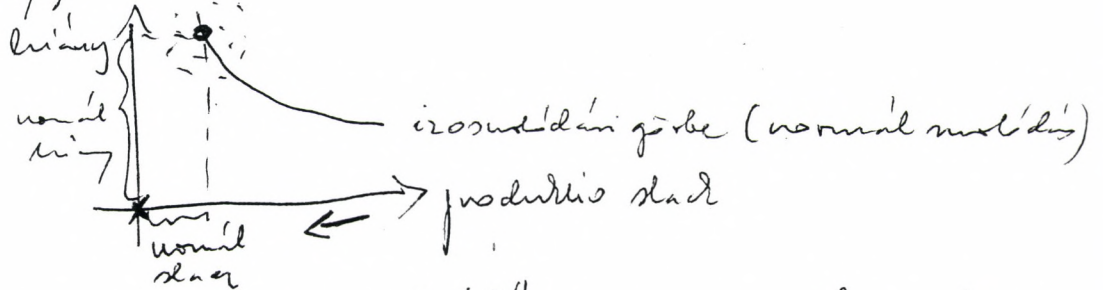 hiány
normál
hiány
izosurlódási görbe (normál surlódás)
produktio slack
normál
slack